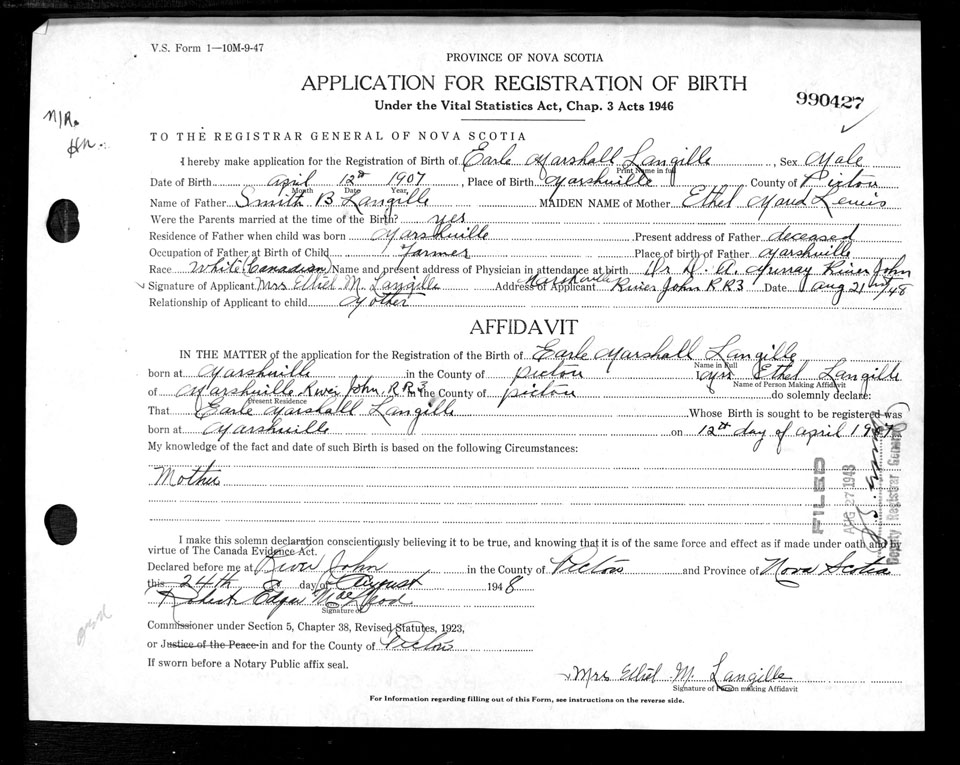 V.S. Form 1—10M-9-47
PROVINCE OF NOVA SCOTIA
APPLICATION FOR REGISTRATION OF BIRTH
990427
Under the Vital Statistics Act, Chap. 3 Acts 1946
N/R.
TO THE REGISTRAR GENERAL OF NOVA SCOTIA
I hereby make application for the Registration of Birth of Earle Marshall Langille, Sex Male
Print Name in full
Date of Birth April 12th 1907, Place of Birth Marshville County of Pictou
Month Date Year
Name of Father Smith B Langille MAIDEN NAME of Mother Ethel Maud Lewis
Were the Parents married at the time of the Birth? yes
Residence of Father when child was born Marshville Present address of Father deceased
Occupation of Father at Birth of Child Farmer Place of birth of Father Marshville
Race White (Canadian) Name and present address of Physician in attendance at birth Dr D. A. Murray River John
Signature of Applicant Mrs Ethel M. Langille Address of Applicant Marshville River John RR3 Date Aug 21 /48
Relationship of Applicant to child Mother
AFFIDAVIT
IN THE MATTER of the application for the Registration of the Birth of Earle Marshall Langille
Name in Full
born at Marshville in the County of Pictou I Mrs Ethel Langille
Name of Person Making Affidavit
of Marshville River John, R.R.3 in the County of Pictou do solemnly declare:
Present Residence
That Earle Marshall Langille Whose Birth is sought to be registered was
born at Marshville on 12th day of April 1907
My knowledge of the fact and date of such Birth is based on the following Circumstances:
Mother
FILED
AUG 27 1948
Deputy Registrar General
I make this solemn declaration conscientiously believing it to be true, and knowing that it is of the same force and effect as if made under oath and by
virtue of The Canada Evidence Act.
Declared before me at River John in the County of Pictou and Province of Nova Scotia
this 24th day of August 1948
Robert Edgar MacLeod
Signature of
Commissioner under Section 5, Chapter 38, Revised Statutes, 1923,
or Justice of the Peace in and for the County of Pictou
If sworn before a Notary Public affix seal.
Mrs Ethel M. Langille
Signature of Person making Affidavit
For Information regarding filling out of this Form, see instructions on the reverse side.